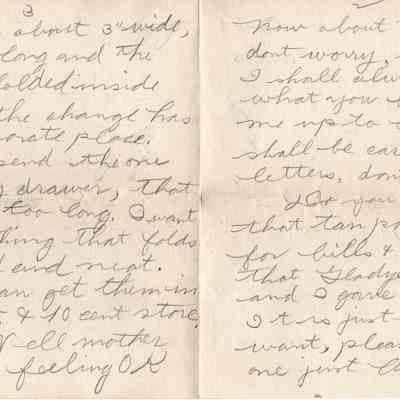 3
about 3" wide,
long and the
folded inside
the change has
orate place.
send the one
drawer, that
too long. I want
thing that folds
and neat.
an get them in
& 10 cent store,
Well mother
feeling OK
2
Now about
dont worry,
I shall alw
what you
me up to
shall be car
letters, don
Do you
that tan po
for bills &
that Gladys
and I gave
It is just
want, pleas
one just li